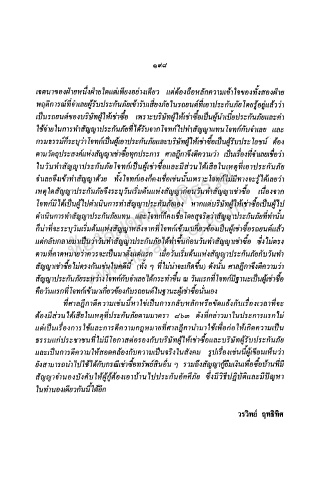 ๑๙๘
เจตนาของฝ่ายหนึ่งฝ่ายใดแต่เพียงอย่างเดียว แต่ต้องถือหลักความเข้าใจของทั้งสองฝ่าย
พฤติการณ์ที่จำเลยผู้รับประกันภัยเข้ารับเสี่ยงภัยในรถยนต์ที่เอาประกันภัยโดยรู้อยู่แล้วว่า
เป็นรถยนต์ของบริษัทผู้ให้เช่าซื้อ เพราะบริษัทผู้ให้เช่าซื้อเป็นผู้นำเบี้ยประกันภัยและค่า
ใช้จ่ายในการทำสัญญาประกันภัยที่ได้รับจากโจทก์ไปทำสัญญาแทนโจทก์กับจำเลย และ
กรมธรรม์ก็ระบุว่าโจทก์เป็นผู้เอาประกันภัยและบริษัทผู้ให้เช่าซื้อเป็นผู้รับประโยชน์ ต้อง
ตามวัตถุประสงค์แห่งสัญญาเช่าซื้อทุกประการ ศาลฎีกาจึงตีความว่า เป็นเรื่องที่จำเลยเชื่อว่า
ในวันทำสัญญาประกันภัยโจทก์เป็นผู้เช่าซื้อและมีส่วนได้เสียในเหตุที่เอาประกันภัย
จำเลยจึงเข้าทำสัญญาด้วย ทั้งโจทก์เองก็คงเชื่อเช่นนั้นเพราะโจทก์ไม่มีทางจะรู้ได้เลยว่า
เหตุใดสัญญาประกันภัยจึงระบุวันเริ่มต้นแห่งสัญญาก่อนวันทำสัญญาเช่าซื้อ เนื่องจาก
โจทก์มิได้เป็นผู้ไปดำเนินการทำสัญญาประกันภัยเอง หากแต่บริษัทผู้ให้เช่าซื้อเป็นผู้ไป
ดำเนินการทำสัญญาประกันภัยแทน และโจทก์ก็คงเชื่อโดยสุจริตว่าสัญญาประกันภัยที่ทำนั้น
ก็น่าที่จะระบุวันเริ่มต้นแห่งสัญญาหลังจากที่โจทก์เข้ามาเกี่ยวข้องเป็นผู้เช่าซื้อรถยนต์แล้ว
แต่กลับกลายมาเป็นว่าวันทำสัญญาประกันภัยได้ทำขึ้นก่อนวันทำสัญญาเช่าซื้อ ซึ่งไม่ตรง
ตามที่คาดหมายว่าควรจะเป็นมาตั้งแต่แรก เมื่อวันเริ่มต้นแห่งสัญญาประกันภัยกับวันทำ
สัญญาเช่าซื้อไม่ตรงกันเช่นในคดีนี้ (ทั้ง ๆ ที่ไม่น่าจะเกิดขึ้น) ดังนั้น ศาลฎีกาจึงตีความว่า
สัญญาประกันภัยระหว่างโจทก์กับจำเลยได้กระทำขึ้น ณ วันแรกที่โจทก์มีฐานะเป็นผู้เช่าซื้อ
คือวันแรกที่โจทก์เข้ามาเกี่ยวข้องกับรถยนต์ในฐานะผู้เช่าซื้อนั่นเอง
ที่ศาลฎีกาตีความเช่นนี้หาใช่เป็นการกลับหลักหรือขัดแย้งกับเรื่องเวลาที่จะ
ต้องมีส่วนได้เสียในเหตุที่ประกันภัยตามมาตรา ๘๖๓ ดังที่กล่าวมาในประการแรกไม่
แต่เป็นเรื่องการใช้และการตีความกฎหมายที่ศาลฎีกานำมาใช้เพื่อก่อให้เกิดความเป็น
ธรรมแก่ประชาชนที่ไม่มีโอกาสต่อรองกับบริษัทผู้ให้เช่าซื้อและบริษัทผู้รับประกันภัย
และเป็นการตีความให้สอดคล้องกับความเป็นจริงในสังคม รูปเรื่องเช่นนี้ผู้เขียนเห็นว่า
ยังสามารถนำไปใช้ได้กับกรณีเช่าซื้อทรัพย์สินอื่น ๆ รวมถึงสัญญากู้ยืมเงินเพื่อซื้อบ้านที่มี
สัญญาจำนองบังคับให้ผู้กู้ต้องเอาบ้านไปประกันอัคคีภัย ซึ่งมีวิธีปฏิบัติและมีปัญหา
ในทำนองเดียวกันนี้ได้อีก
วรวิทย์ ฤทธิทิศ